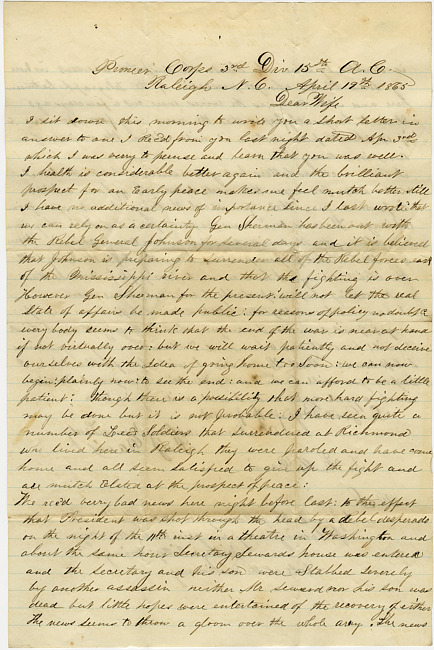 Pioneer Corps 3rd Div 15th A.C.
Raleigh N.C. April 19th 1865
Dear Wife
I sit down this morning to write you a short letter in
answer to one I Recd from you last night dated Apr 3rd
which I was very to peruse and learn that you was well.
I health is considerable better again and the brilliant
prospect for an Early peace makes me feel mutch better still
I have no additional news of importance since I last wrote that
we can rely on as a certainty Gen Sherman has been out with
the Rebel General Johnson for several days and it is believed
that Johnson is preparing to surrender all of the Rebel forces east
of the Mississippi River and that the fighting is over
However Gen Sherman for the present will not let the real
State of affairs be made public: for reasons of policy no doubt: e
very body seems to think that the end of the war is near at hand
if not virtually over: but we will wait patiently and not deceive
ourselves with the Idea of going home too soon: we can now
begin plainly now to see the end: and we can afford to be a little
patient: though there is a possibility that more hard fighting
may be done but it is not probable: I have seen quite a
number of Soldiers that surrendered at Richmond
who lived here in Raleigh they were paroled and have come
home and all seem satisfied to give up the fight and
are mutch Elated at the prospect of peace:
We recd very bad news here night before last: to the effect
that President was shot through the head by a desperado
on the night of the inst in a theatre in Washington and
about the same hour Secretary Sewards house was entered
and the Secretary and his son were Stabbed severely
by another assassin neither Mr Seward nor his son was
dead but little hopes were entertained of the recovery of either
The news seems to throw a gloom over the whole army. The news